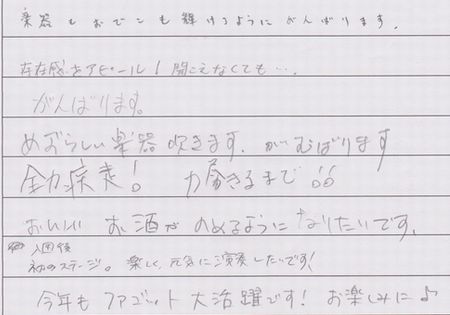 楽器もおでこも輝けるようにがんばります。
存在感をアピール！聞こえなくても…。
がんばります。
めずらしい楽器吹きます。がむばります
全力疾走！ 力届きるまで
おいしい お酒が のめるように なりたいです。
入団後
初のステージ。楽しく、元気に演奏したいです！
今年も ファゴット 大活躍です！ お楽しみに♪